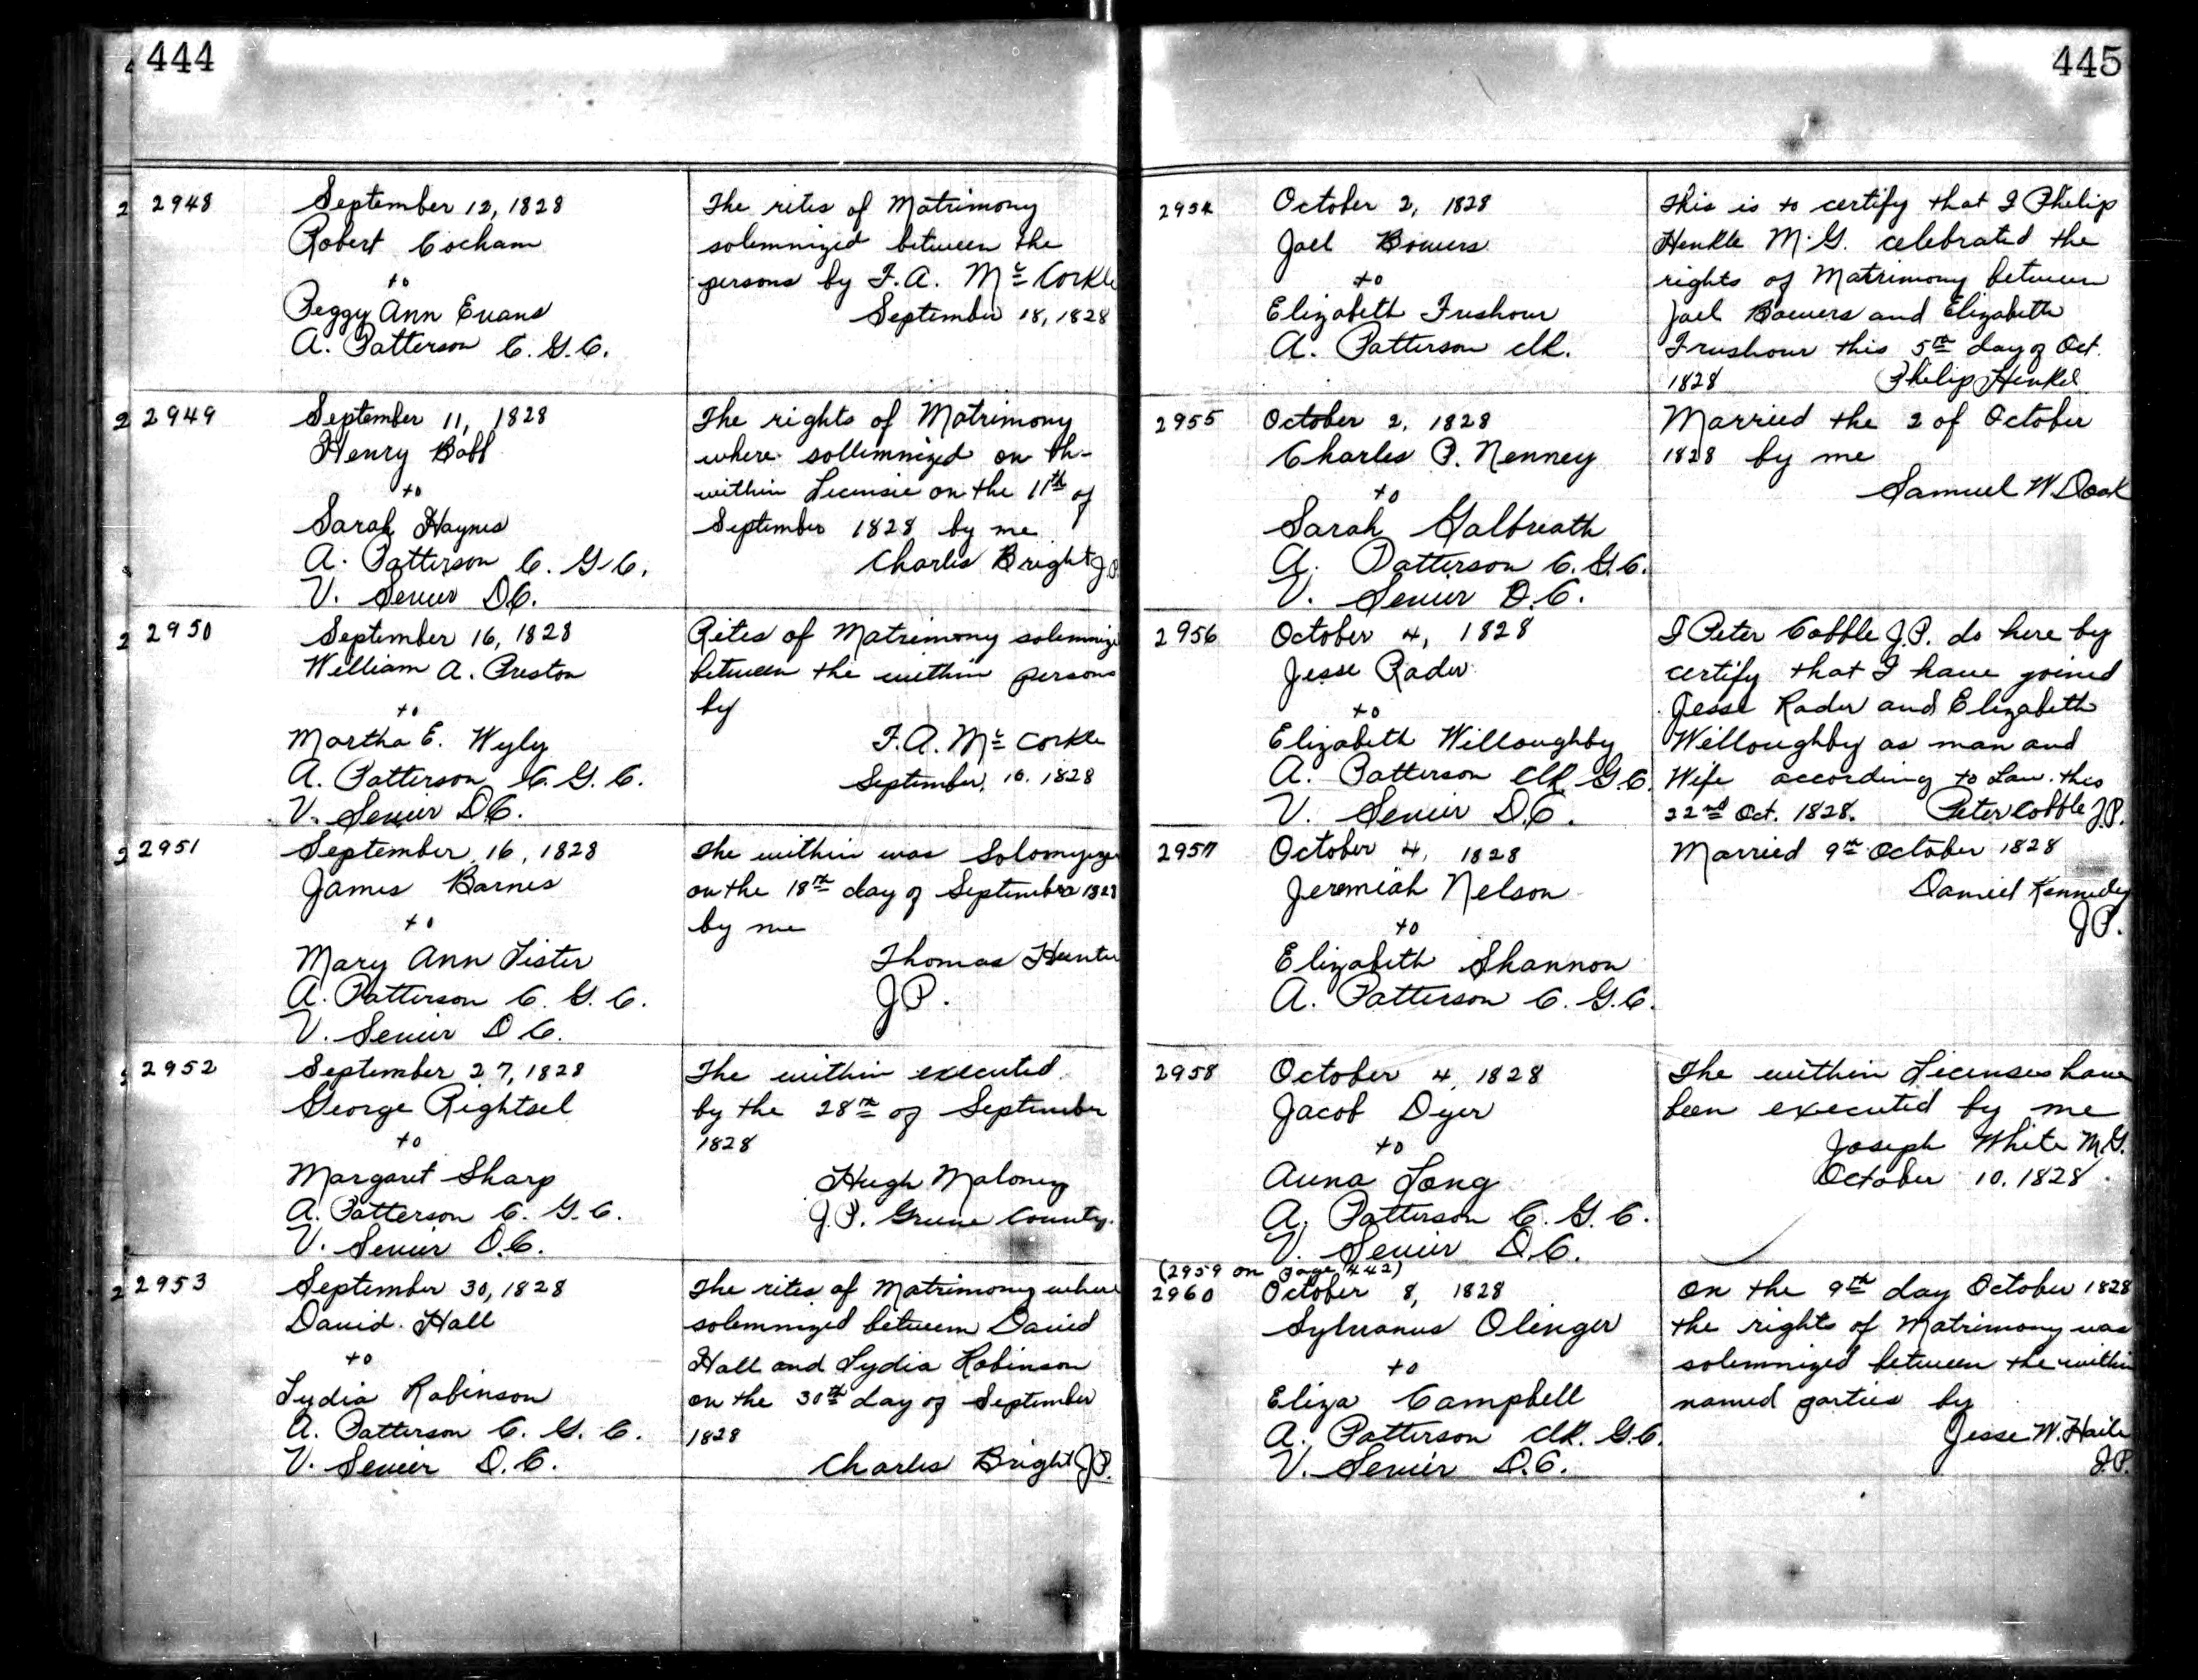 444
2948
September 12, 1828
Robert Cocham
to
Peggy Ann Evans
A. Patterson C. G. C.
The rites of Matrimony
solemnized between the
persons by F. A. Mc Corkle
September 18, 1828
2949
September 11, 1828
Henry Babb
to
Sarah Haynes
A. Patterson C. G. C.
V. Sevier D.C.
The rights of Matrimony
where sollemnized on th-
within Licensie on the 11th of
September 1828 by me
Charles Bright J.P.
2950
September 16, 1828
William A. Preston
to
Martha E. Wyly
A. Patterson C. G. C.
V. Sevier D.C.
Rites of Matrimony solemnize
between the within persons
by
F. A. Mc Corkle
September, 16. 1828
2951
September 16, 1828
James Barnes
to
Mary Ann Lister
A. Patterson C. G. C.
V. Sevier D C.
The within was
on the 18th day of September 1828
by me
Thomas Hunter
J P.
2952
September 27, 1828
George Rightsel
to
Margaret Sharp
A. Patterson C. G. C.
V. Sevier D.C.
The within executed
by the 28th of September
1828
Hugh Maloney
J. P. Greene County.
2953
September 30, 1828
David. Hall
to
Lydia Robinson
A. Patterson C. G. C.
V. Sevier D. C.
The rites of Matrimony where
solemnized between David
Hall and Lydia Robinson
on the 30th day of September
1828
Charles Bright J.P.
445
2954
October 2, 1828
Joel Bowers
to
Elizabeth Frushour
A. Patterson clk.
This is to certify that I Philip
Henkle M. G. celebrated the
rights of Matrimony between
Joel Bowers and Elizabeth
Frushour this 5th day of Oct.
1828 Philip Henkel
2955
October 2, 1828
Charles P. Nenney
to
Sarah Galbreath
A. Patterson C. G. C.
V. Sevier D. C.
Married the 2 of October
1828 by me
Samuel W. Doak
2956
October 4, 1828
Jesse Rader
to
Elizabeth Willoughby
A. Patterson Clk G. C.
V. Sevier D.C.
I Peter Cobble J.P. do here by
certify that I have joined
Jesse Rader and Elizabeth
Willoughby as man and
Wife according to Law this
22nd Oct. 1828. Peter Cobble J.P.
2957
October 4, 1828
Jeremiah Nelson
to
Elizabeth Shannon
A. Patterson C. G. C.
Married 9th October 1828
Daniel Kennedy
J.P.
2958
October 4, 1828
Jacob Dyer
to
Anna Long
A. Patterson C. G. C.
V. Sevier D.C.
The within Licenses have
been executed by me
Joseph White M.G.
October 10, 1828
(2959 on page 442)
2960
October 8, 1828
Sylvanus Olinger
to
Eliza Campbell
A. Patterson Clk. G.C.
V. Sevier D.C.
On the 9th day October 1828
the rights of Matrimony was
solemnized between the within
named parties by
Jesse W. Haile
J.P.